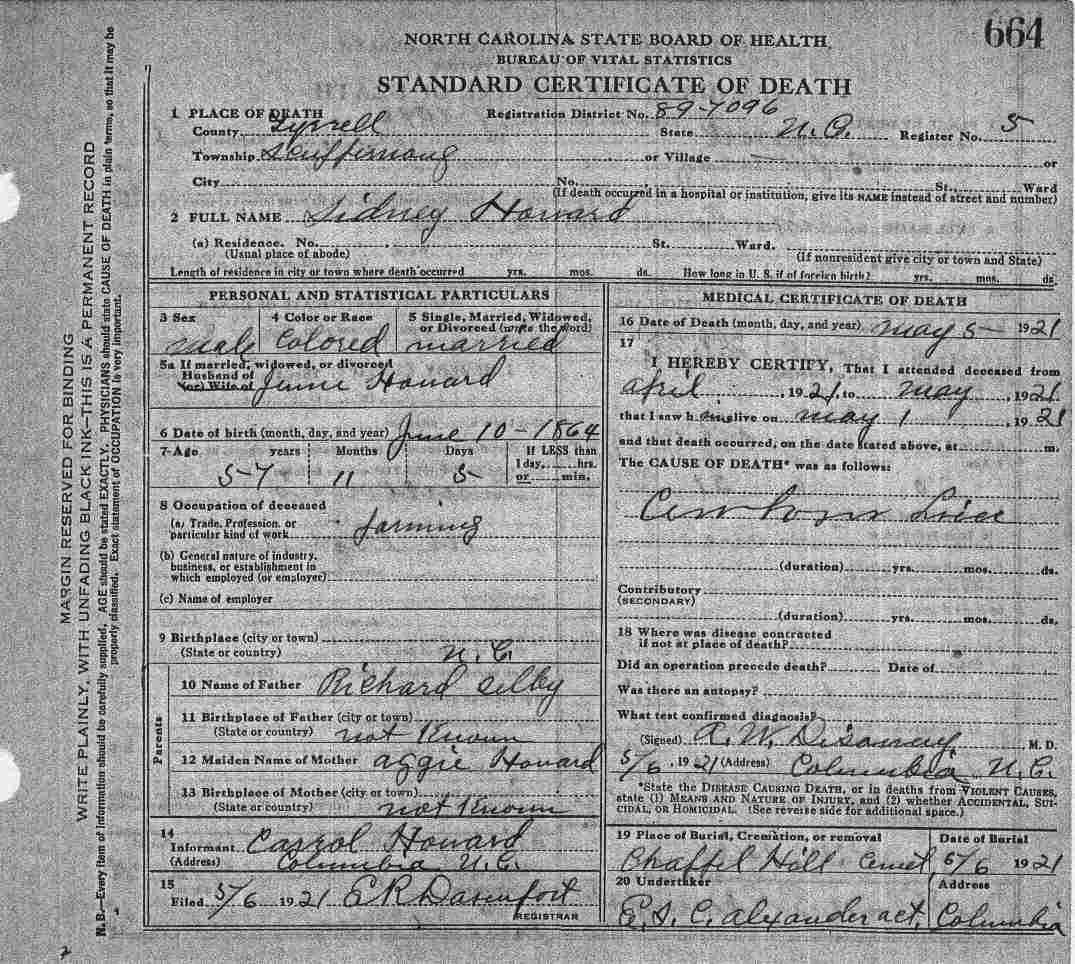 664
NORTH CAROLINA STATE BOARD OF HEALTH
BUREAU OF VITAL STATISTICS
STANDARD CERTIFICATE OF DEATH
1 PLACE OF DEATH Registration District No. 89-7096
County Tyrrell State N.C. Register No. 5
Township Scuppernong or Village or
City No. St. Ward
(If death occurred in a hospital or institution, give its NAME instead of street and number)
2 FULL NAME Sidney Howard
(a) Residence. No. St. Ward.
(Usual place of abode) (If nonresident give city or town and State)
Length of residence in city or town where death occurred yrs. mos. ds. How long in U. S. if of foreign birth? yrs. mos. ds.
MARGIN RESERVED FOR BINDING
WRITE PLAINLY, WITH UNFADING BLACK INK—THIS IS A PERMANENT RECORD
N. B.—Every item of information should be carefully supplied. AGE should be stated EXACTLY. PHYSICIANS should state CAUSE OF DEATH in plain terms, so that it may be
properly classified. Exact statement of OCCUPATION is very important.
PERSONAL AND STATISTICAL PARTICULARS
3 Sex 4 Color or Race 5 Single, Married, Widowed,
or Divorced (write the word)
male Colored married
5a If married, widowed, or divorced
Husband of
(or) Wife of Howard
6 Date of birth (month, day, and year) June 10-1864
7-Age years Months Days If LESS than
1 day, hrs.
57 11 5 or min.
8 Occupation of deceased
(a) Trade, Profession, or
particular kind of work farming
(b) General nature of industry,
business, or establishment in
which employed (or employer)
(c) Name of employer
9 Birthplace (city or town)
(State or country) N.C.
Parents
10 Name of Father Richard Selby
11 Birthplace of Father (city or town)
(State or country) not Known
12 Maiden Name of Mother aggie Howard
13 Birthplace of Mother (city or town)
(State or country) not Known
14
Informant Carrol Howard
(Address) Columbia N.C.
15
Filed 5/6 1921 E R Davenport
REGISTRAR
MEDICAL CERTIFICATE OF DEATH
16 Date of Death (month, day, and year) may 5 1921
17
I HEREBY CERTIFY, That I attended deceased from
april, 1921, to may, 1921.
that I saw h im alive on may 1, 1921
and that death occurred, on the date stated above, at m.
The CAUSE OF DEATH* was as follows:
(duration) yrs. mos. ds.
Contributory
(SECONDARY)
(duration) yrs. mos. ds.
18 Where was disease contracted
if not at place of death?
Did an operation precede death? Date of
Was there an autopsy?
What test confirmed diagnosis?
(Signed) A. W. M. D.
5/6, 1921 (Address) Columbia N.C.
*State the DISEASE CAUSING DEATH, or in deaths from VIOLENT CAUSES,
state (1) MEANS AND NATURE OF INJURY, and (2) whether ACCIDENTAL, SUI-
CIDAL, OR HOMICIDAL. (See reverse side for additional space.)
19 Place of Burial, Cremation, or removal Date of Burial
Chappel Hill Cemet 5/6 1921
20 Undertaker Address
E. S. C. alexander act. Columbia